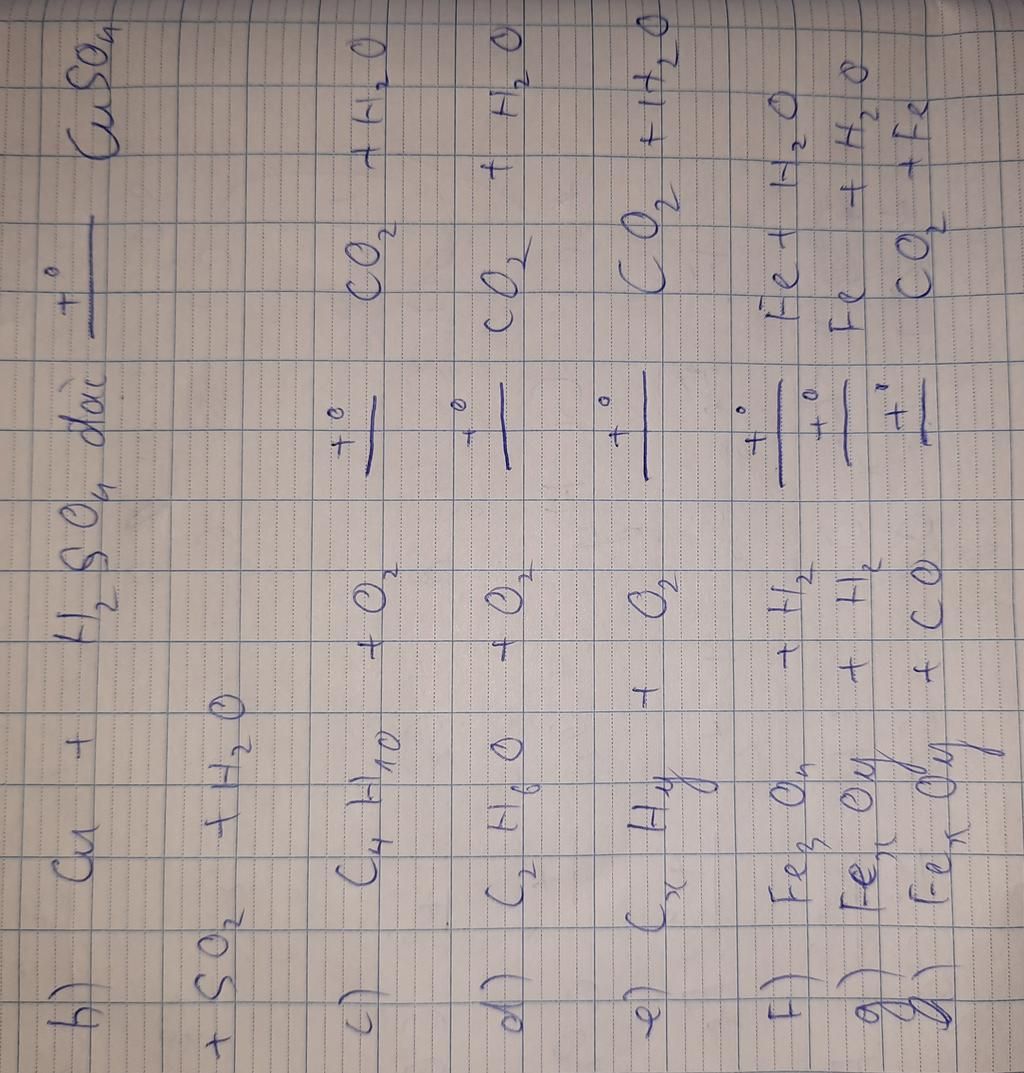 b) Cu + H₂SO₄ đặc —t°— CuSO₄
+ SO₂ + H₂O
c) C₄H₁₀ + O₂ —t°— CO₂ + H₂O
d) C₂H₆O + O₂ —t°— CO₂ + H₂O
e) CₓHy + O₂ —t°— CO₂ + H₂O
f) Fe₃O₄ + H₂ —t°— Fe + H₂O
g) FeₓOy + H₂ —t°— Fe + H₂O
g) FeₓOy + CO —t°— CO₂ + Fe